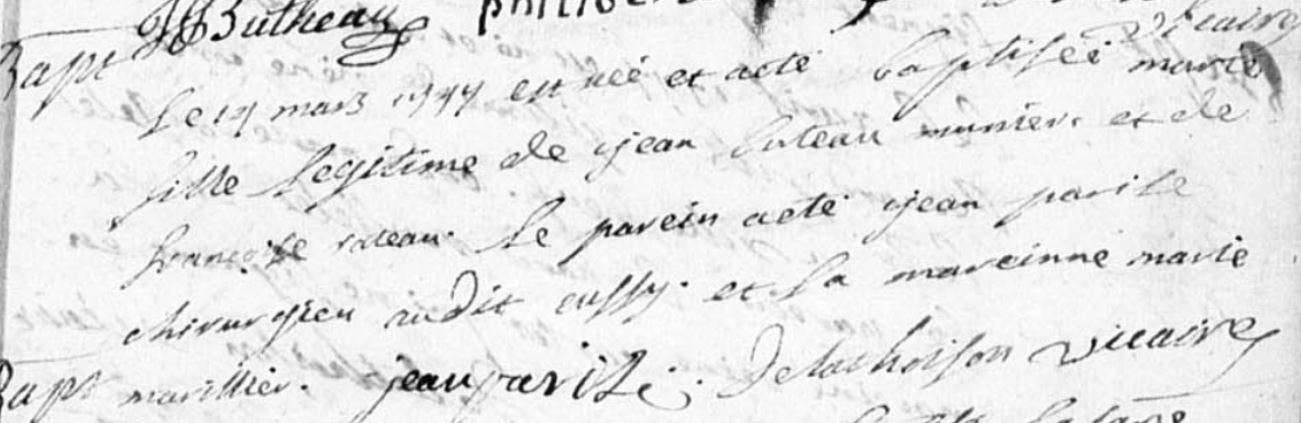 JJButheau phili
vicaire
Bapt
Le 19 mars 1747 est né et acté baptisée marie
fille legitime de jean luteau munier et de
françoise rateau. Le parein acté jean parise
chirurgien audit cussy. et la mareinne marie
Bapt marillier. jean parise. Delachoison vicaire